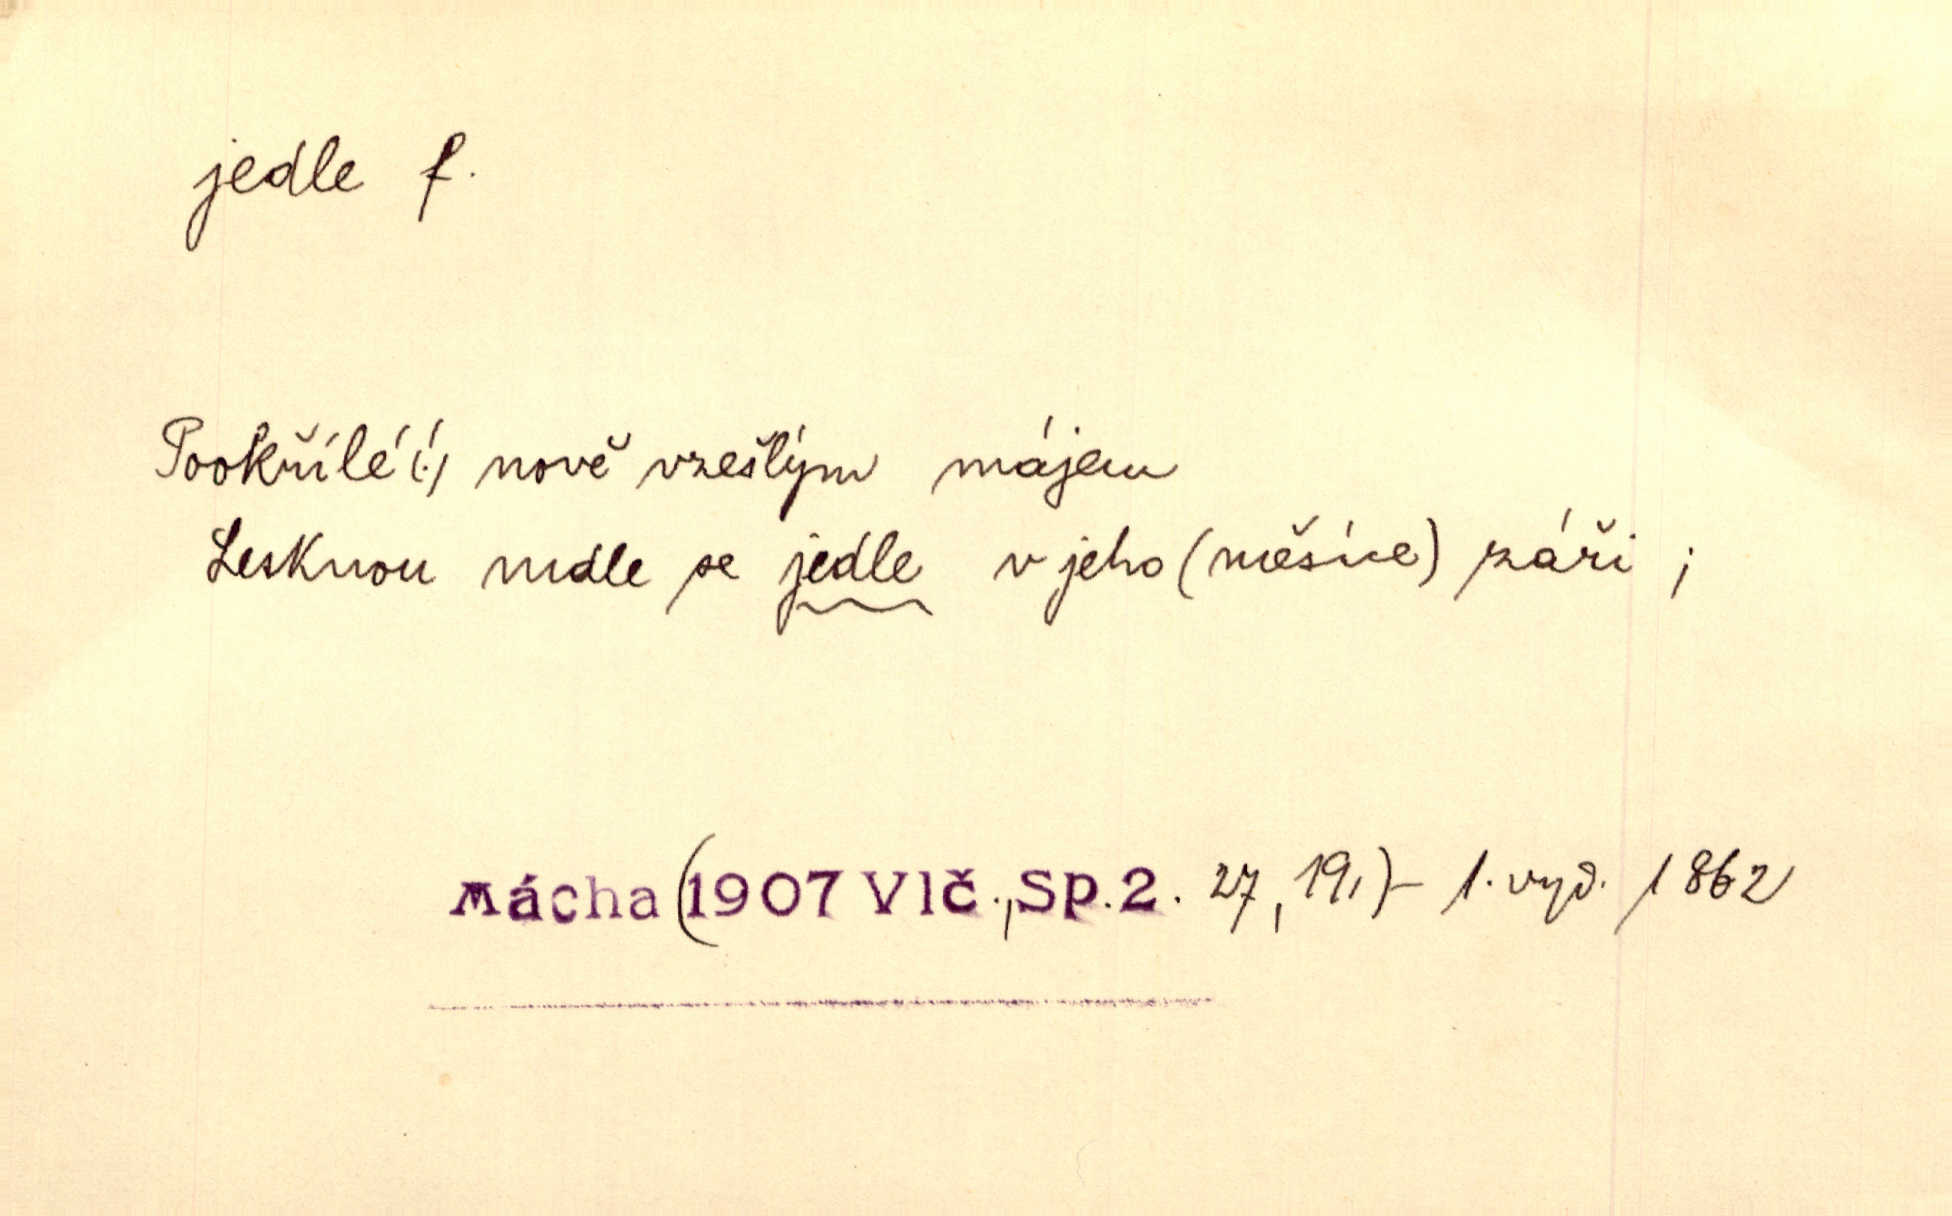 jedle f.
Pookřílé (!) nově vzešlým májem
Lesknou mdle se jedle v jeho (měsíce) záři ;
Mácha (1907 Vlč., Sp.2. 27, 19,) – 1. vyd. 1862